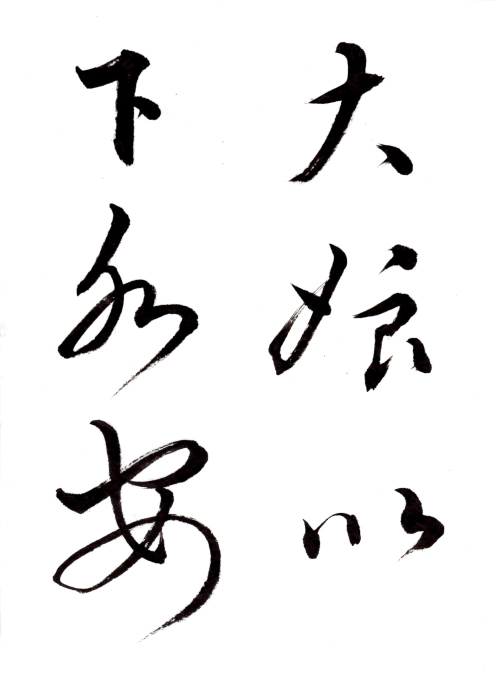 大娘以
下各安